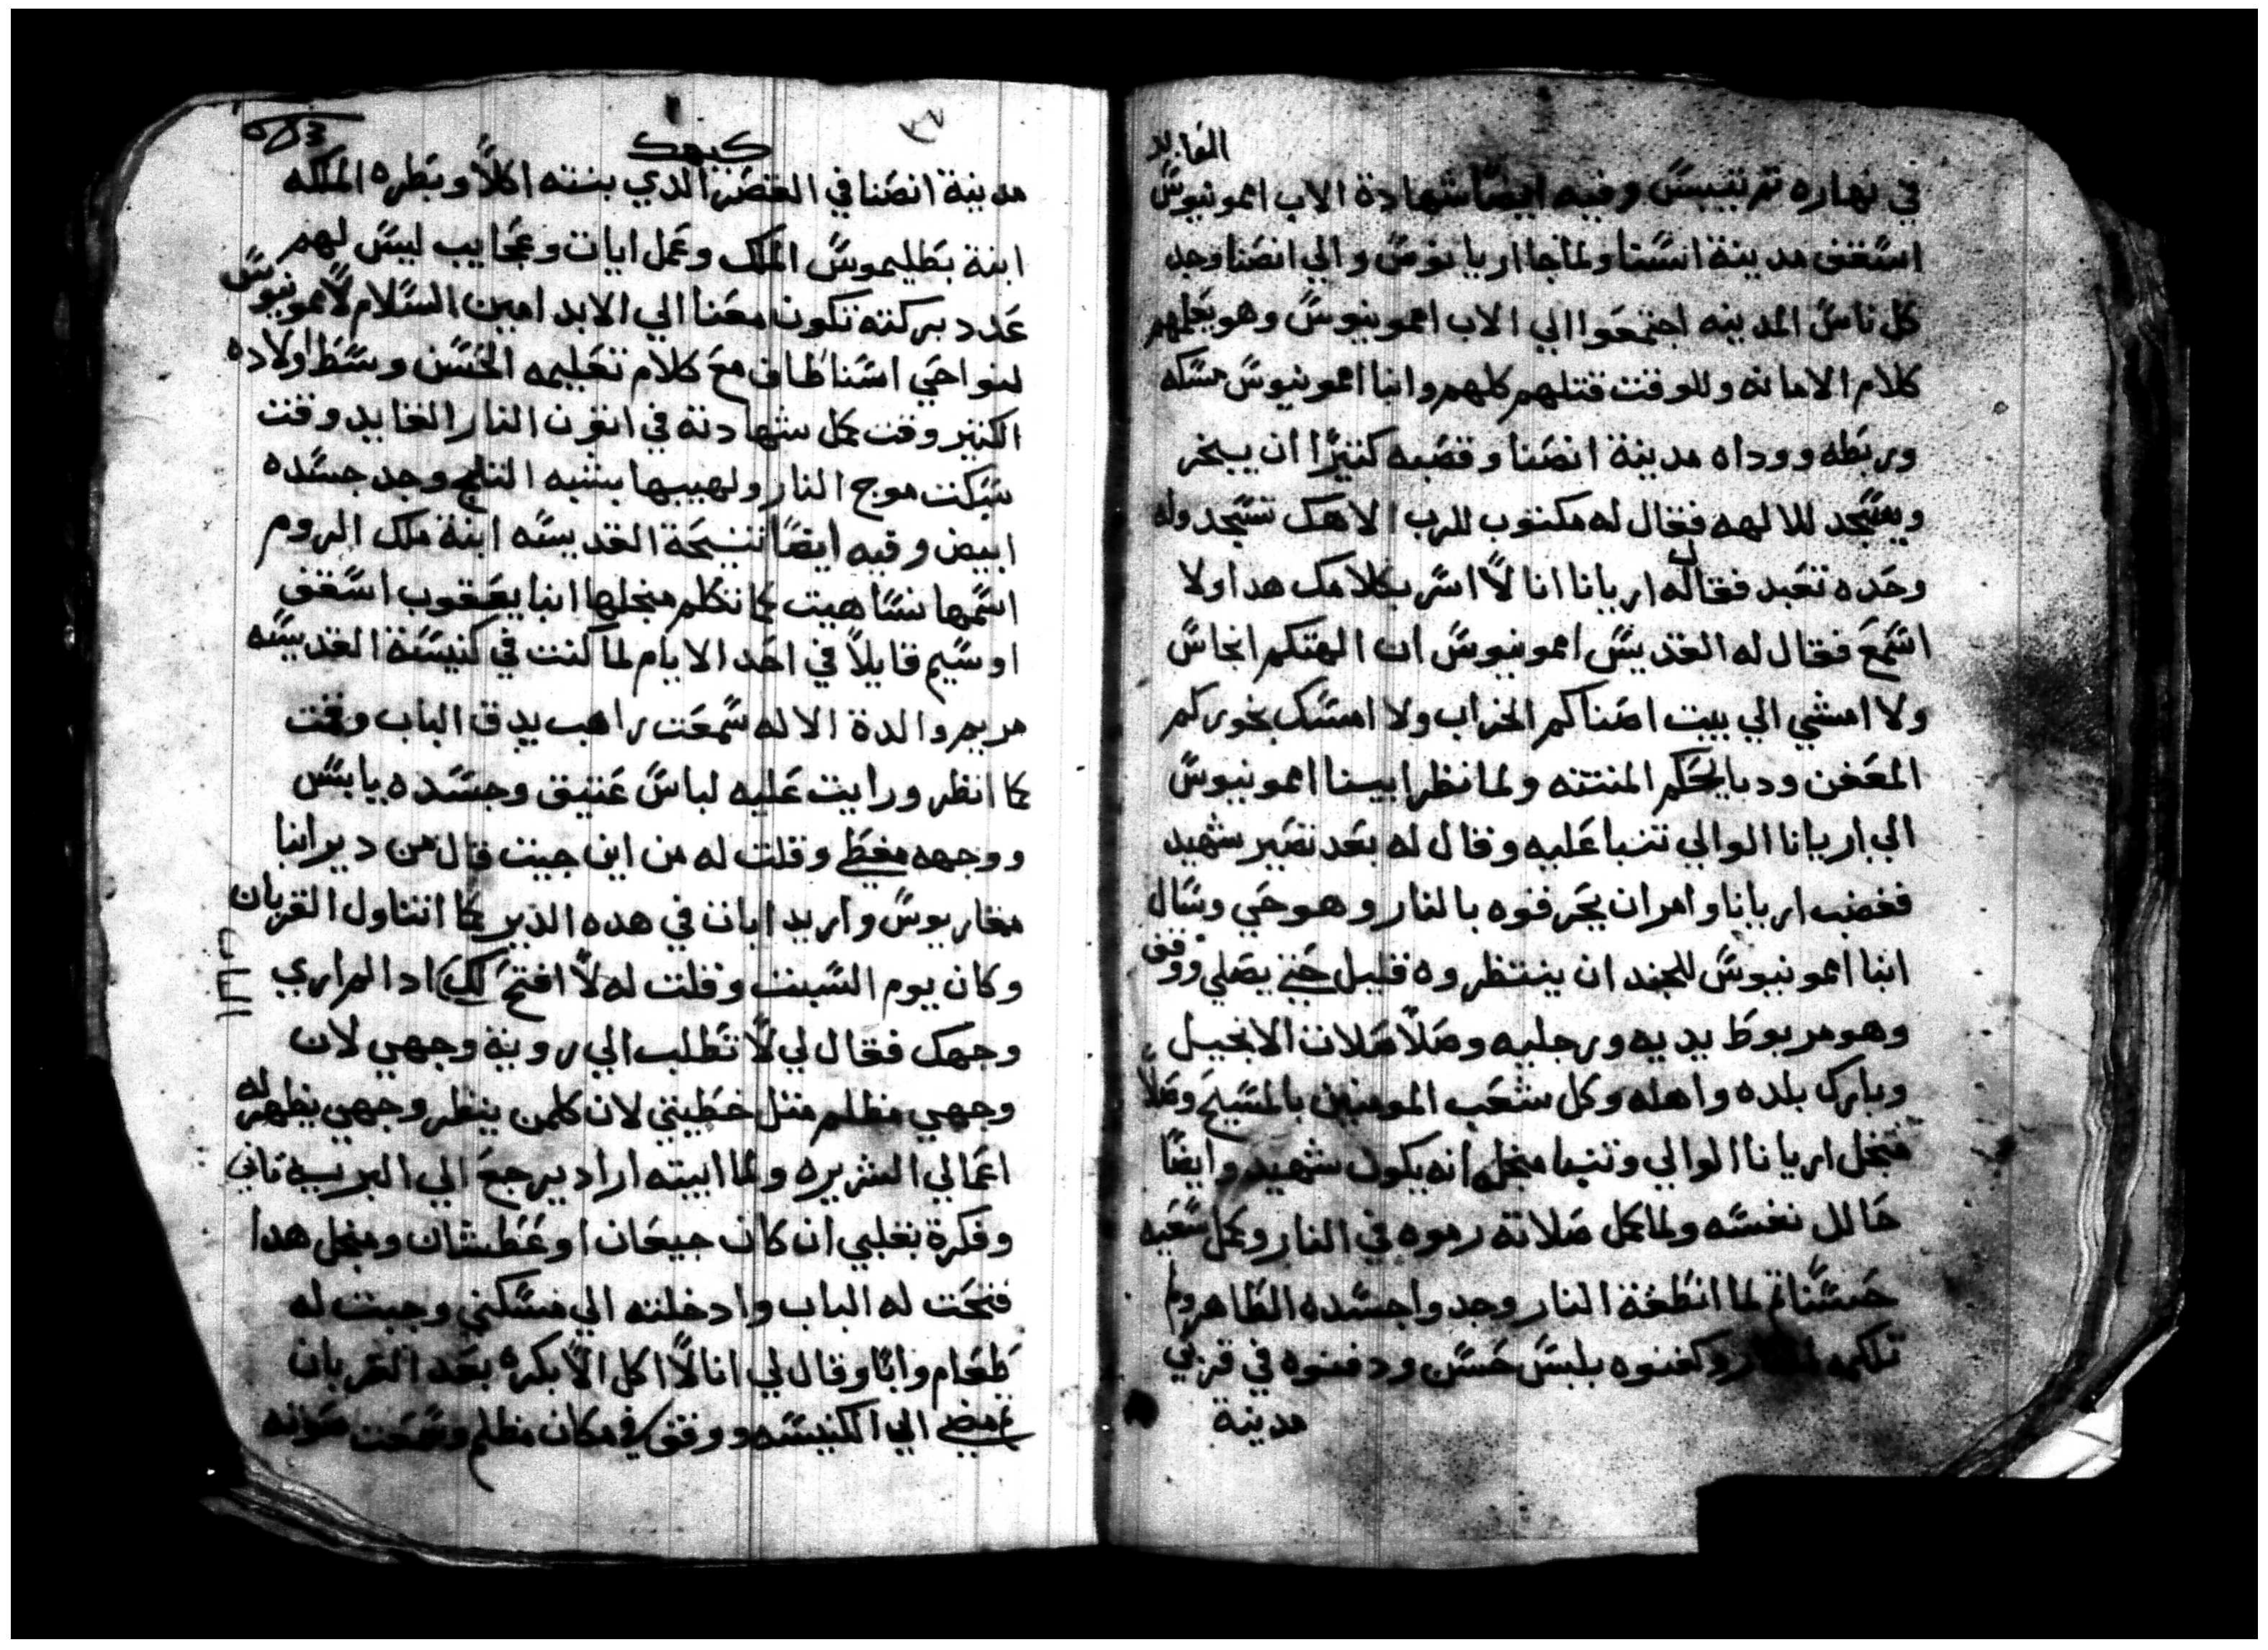 في نهاره تمر تبببسً وفيه ايضًا شهادة الاب امونيوسً
اسًقف مدينة اسًنا ولما جا اريانوسً والي انصَنا وجد
كل ناسً المدينه اجتمعَوا الي الاب امونيوسً وهو يعَلمهم
كلام الامانه وللوقت قتلهم كلهم وانبا امونيوسً مسَكه
وربَطه ووداه مدينة انصَنا وغصَبه كتيرًا ان يبخر
ويسًجد للالهه فقال له مكتوب للرب الاهك تسًجد وله
وحَده تعَبد فقال له اريانا انا لاً اسَر بكلامك هدا ولا
اسًمعَ فقال له القديسً امونيوسً ان الهتكم انجاسً
ولا امشي الي بيت اصَنامكم الخراب ولا امسَك بخوركم
المعَفن ودبايحَكم المنتنه ولما نظر ابينا امونيوسً
الي اريانا الوالي تنبا عَليه وقال له بعَد تصَير شهيد
فغضب اريانا وامر ان يحَرقوه بالنار وهو حَي وسَال
انبا امونيوسً للجند ان ينتظروه قليل حَتي يصَلي ووقف
وهو مربوطَ يديه ورجليه وصَلاً صَلات الانجيل
وبارك بلده واهله وكل شعَب المومنين بالمسًيحَ وصَلاً
منجل اريانا الوالي وتنبا منجله انه يكون شهيد وايضًا
حَالل نفسًه ولما كمل صَلاته رموه في النار وكمل سَعَيه
حَسًنًا ثم لما انطَفة النار وجدوا جسًده الطَاهر ولم
تلكمه النار وكفنوه بلبسً حَسًن ودفنوه في قرني
مدينة
كيهك
مدينة انصَنا في القصَر الدي بنته اكلاًوبَطَره الملكه
ابنة بَطَليموسً الملك وعَمل ايات وعَجايب ليسً لهم
عَدد بركته تكون معَنا الي الابد امين السًلام لاًمونيوسً
لنواحَي اسًنا طَاف معَ كلام تعَليمه الحَسًن وسًطَ اولاده
الكتير وقت كمل شهادته في اتون النار القايد وقت
سَكت موج النار ولهيبها بشبه التلج وجد جسًده
ابيض وفيه ايضًا تنيحَة القديسًه ابنة ملك الروم
اسًمها نسًاهيت كما تكلم منجلها انبا يعَقوب اسًقف
اوسًيم قايلاً في احَد الايام لما كنت في كنيسًة القديسًه
مريم والدة الاله سًمعَت راهب يدق الباب وقمت
كما انظر ورايت عَليه لباسً عَتيق وجسًده يابسً
ووجهه مغطَي وقلت له من اين جيت قال من دير انبا
مقاريوسً واريد ابات في هده الدير كما اتناول القربان
وكان يوم السًبت وقلت له لاً افتحَ لك الباب ادا لم اري
وجهك فقال لي لاً تطَلب الي روية وجهي لان
وجهي مظلم متل خطَيتي لان كلمن ينظر وجهي يظهر له
اعَمالي الشريره ولما ابيته اراد يرجعَ الي البريه تاني
وفكرة بقلبي ان كان جيعَان او عَطَشان ومنجل هدا
فتحَت له الباب وادخلته الي مسًكني وجبت له
طَعَام واما وقال لي انا لاً اكل الاً بكره بعَد القربان
ثم مضي الي الكنيسًه ووقف في مكان مظلم وسًمعَت صَوته